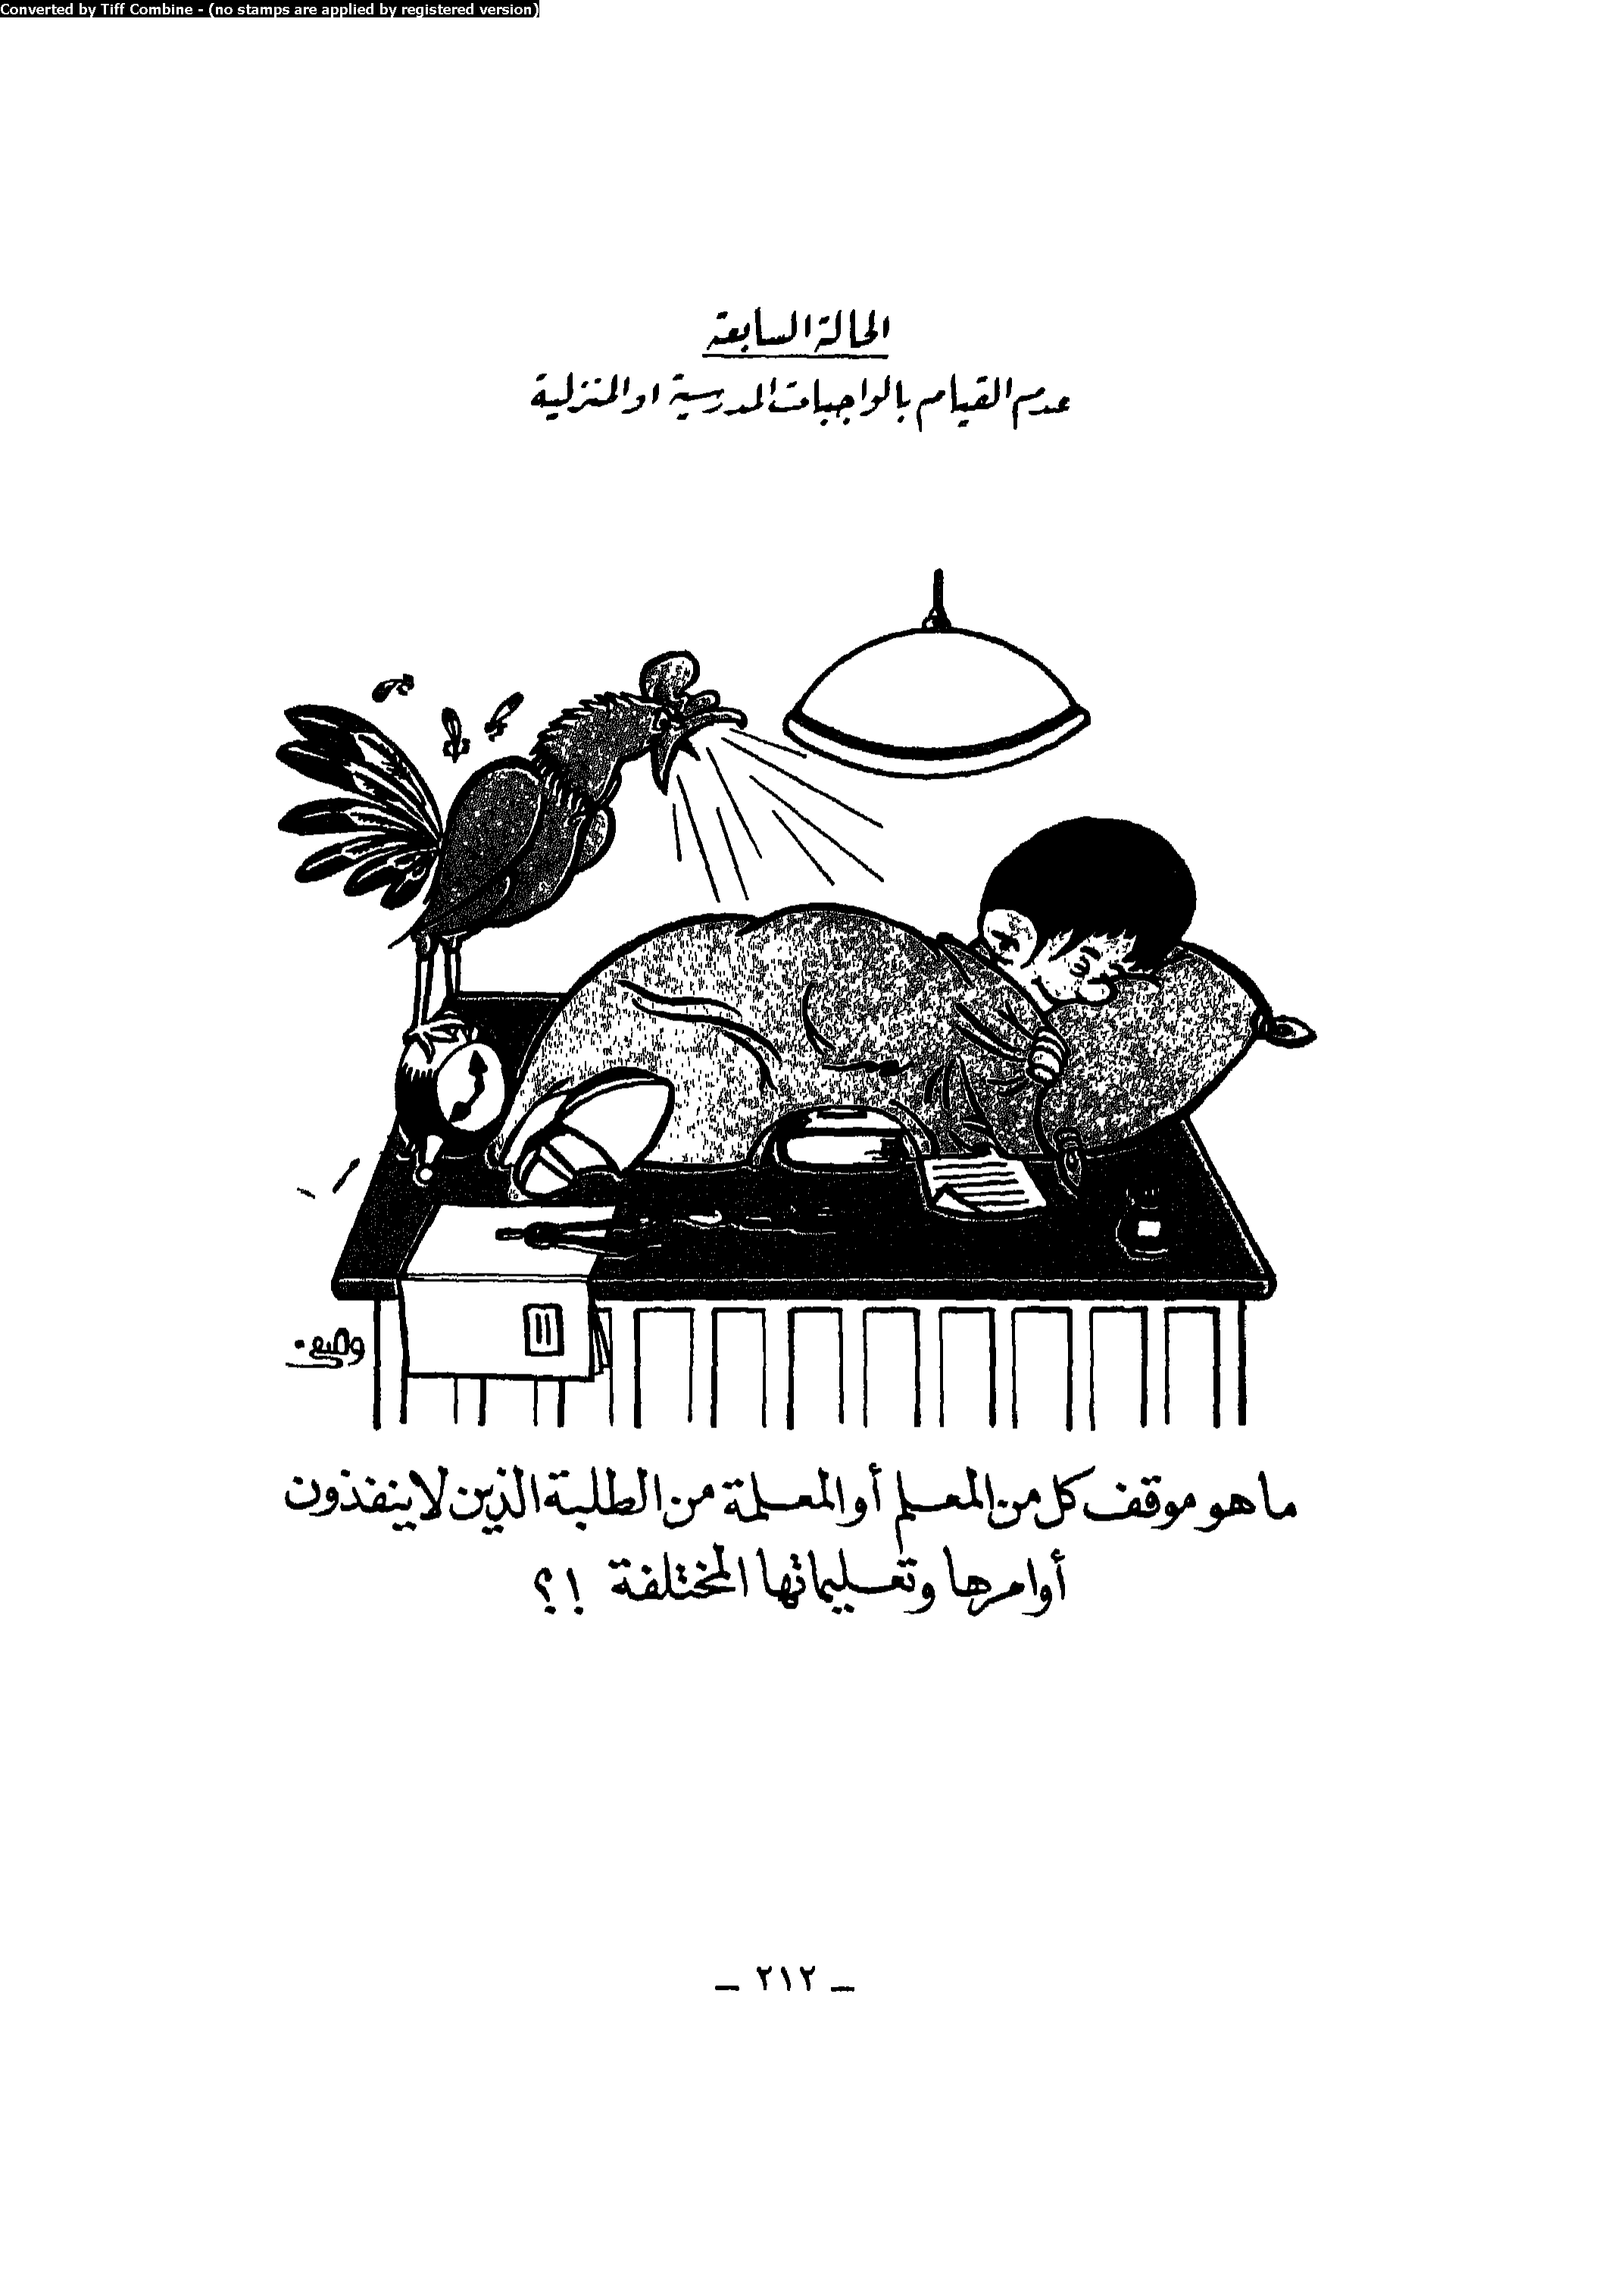 Converted by Tiff Combine - (no stamps are applied by registered version)
الحالة السابعة
عدم القيام بالواجبات المدرسية او المنزلية
وصيف
ما هو موقف كل من المعلم أو المعلمة من الطلبة الذين لا ينفذون
أوامرها وتعليماتها المختلفة !؟
– ٢١٢ –